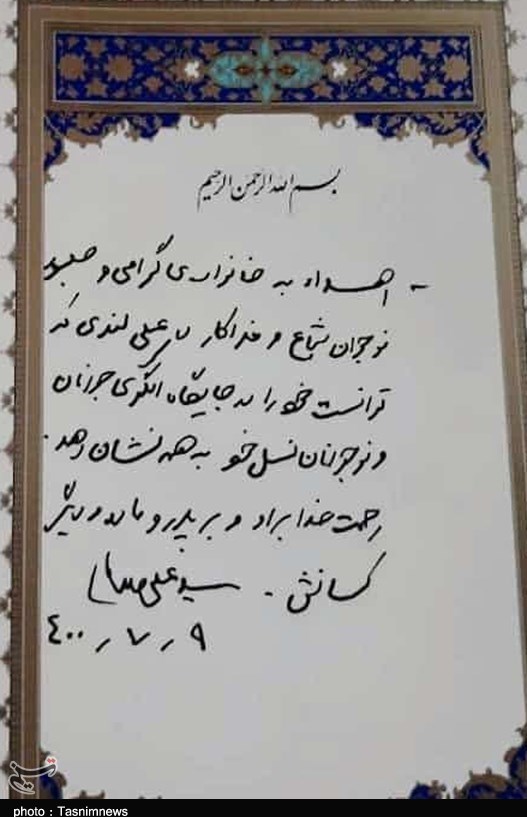 بسم الله الرحمن الرحیم
- اهداء به خانواده‌ی گرامی و صبور
نوجوان شجاع و فداکار علی لندی که
توانست خود را در جایگاه الگوی جوانان
و نوجوانان نسل خود به همه نشان دهد.
رحمت خدا بر او و بر پدر و مادر و دیگر
کسانش. سید علی خامنه‌ای
۴۰۰٫۷٫۹
تسنیم
photo : Tasnimnews